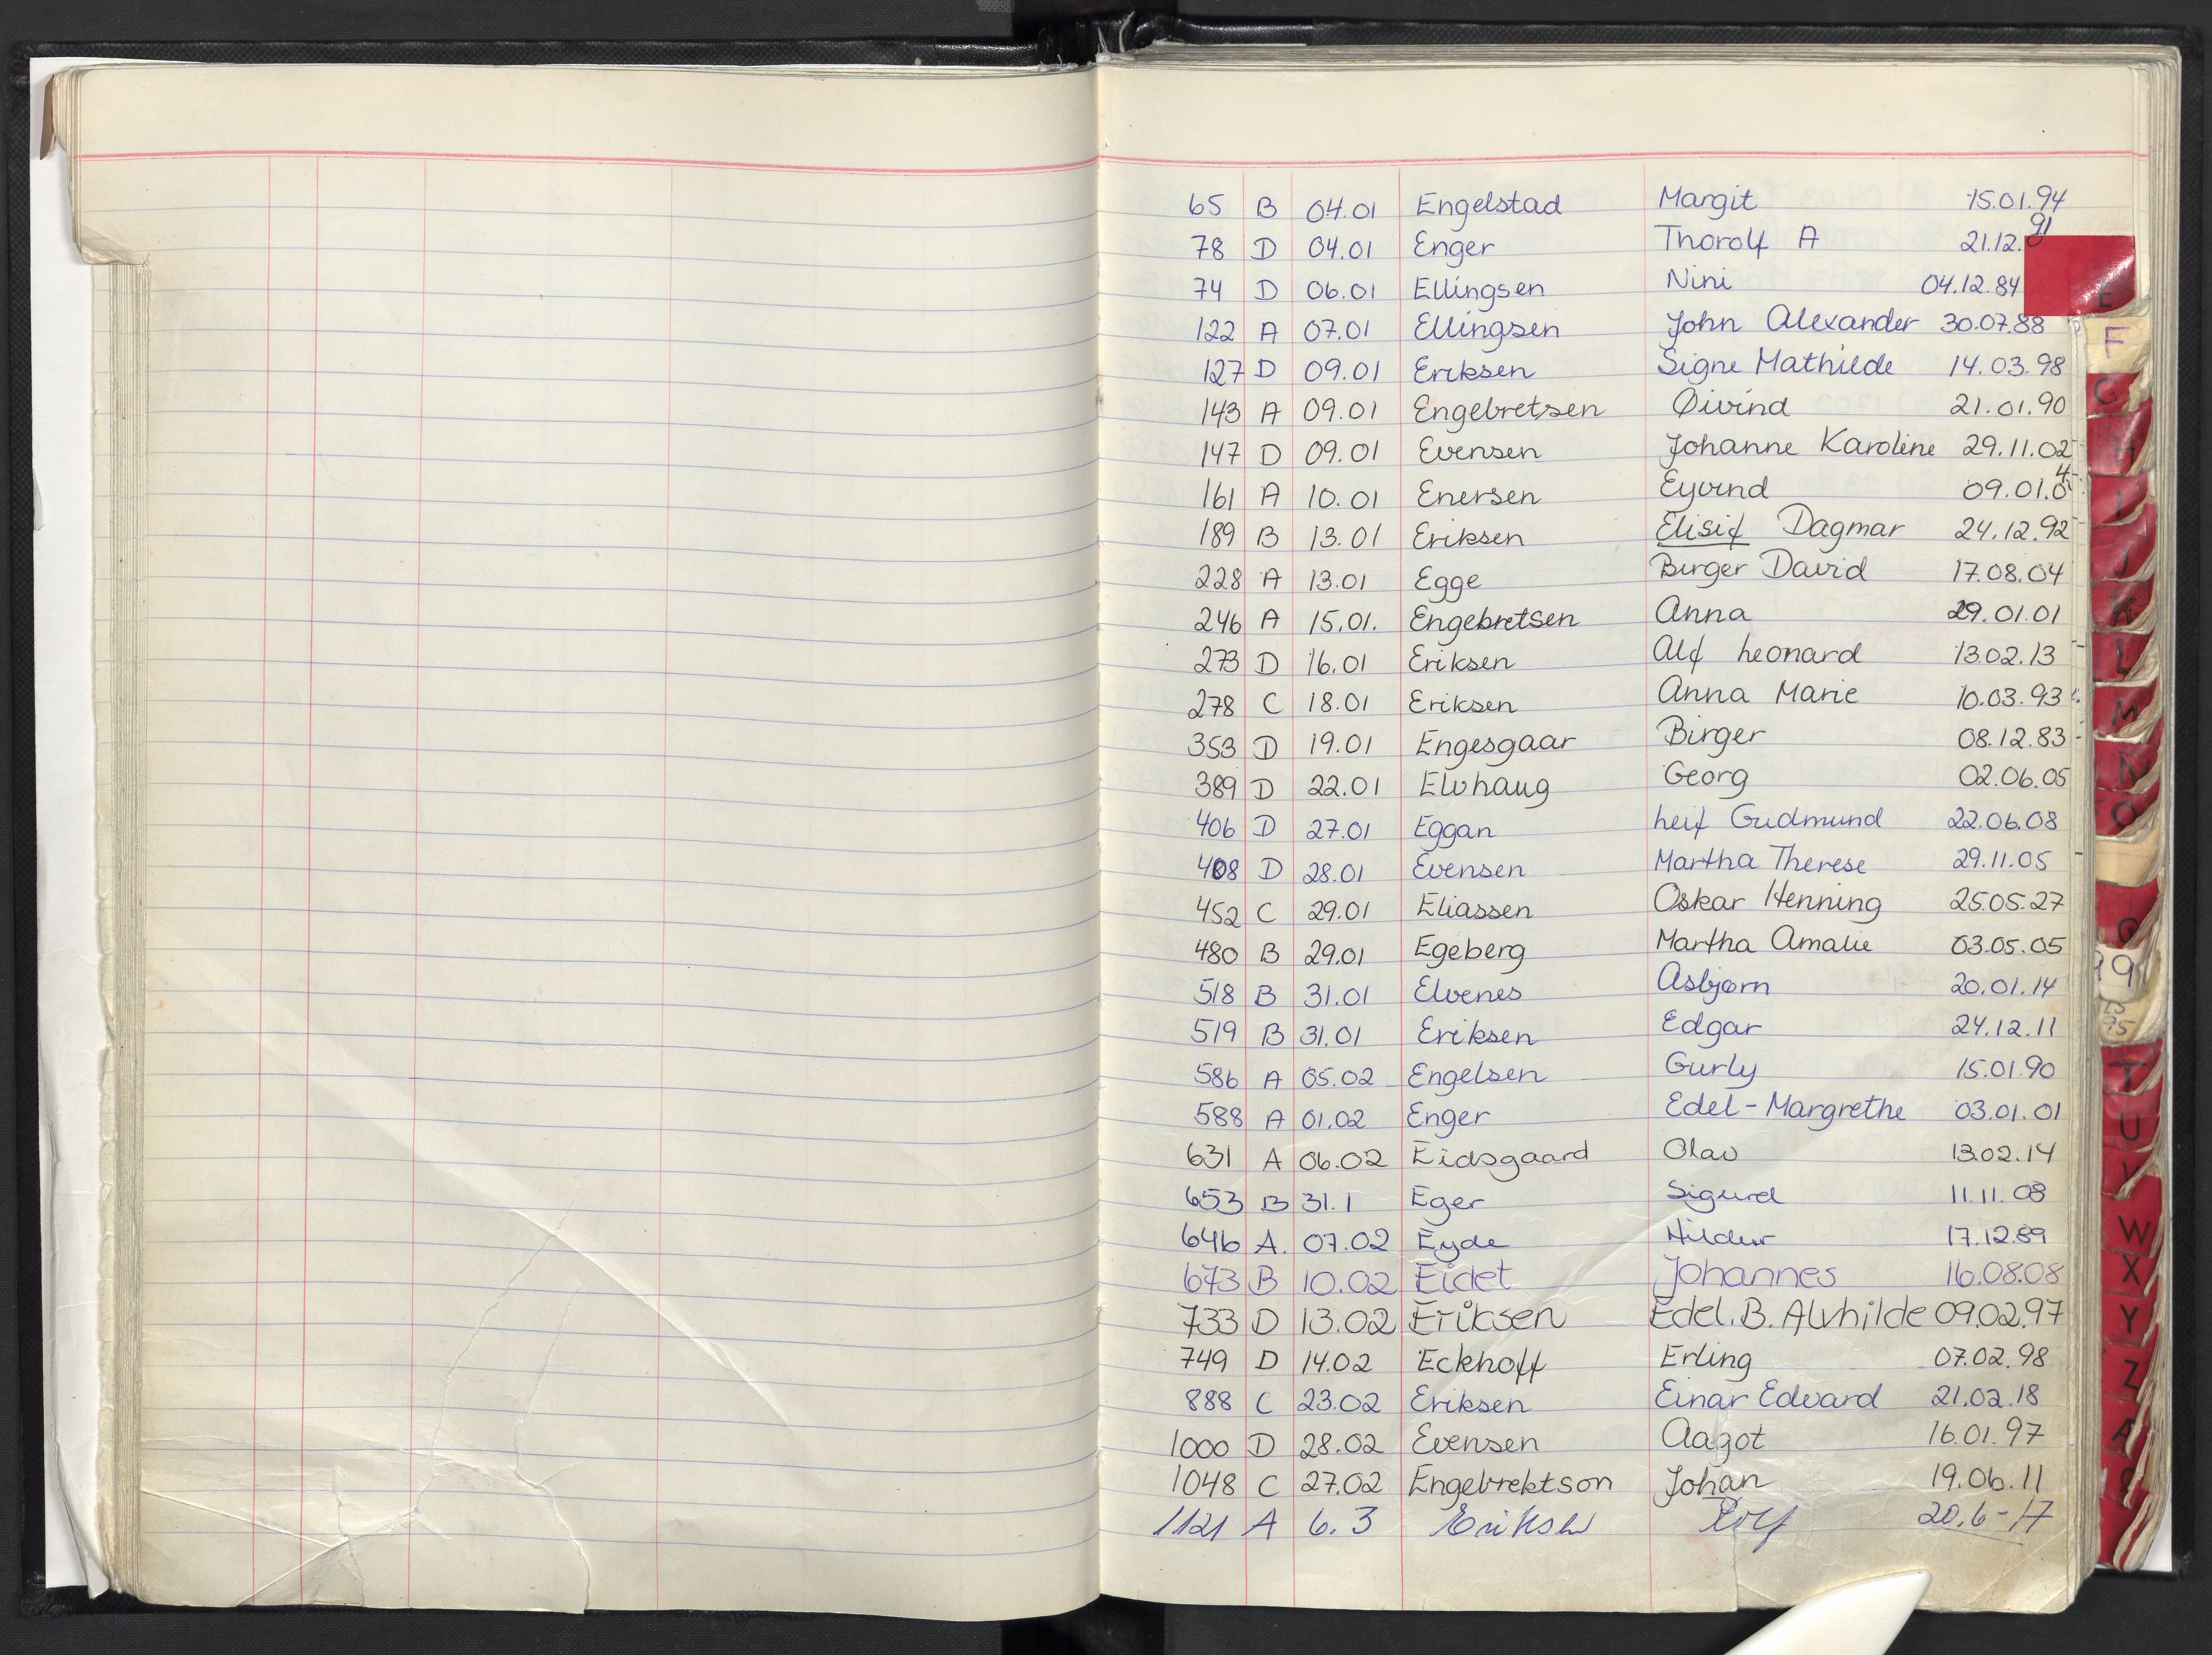 65 B 04.01 Engelstad Margit 15.01.94
78 D 04.01 Enger Thorolf A 21.12.91
74 D 06.01 Ellingsen Nini 04.12.84
122 A 07.01 Ellingsen John Alexander 30.07.88
127 D 09.01 Eriksen Signe Mathilde 14.03.98
143 A 09.01 Engebretsen Øivind 21.01.90
147 D 09.01 Evensen Johanne Karoline 29.11.02
161 A 10.01 Enersen Eyvind 09.01.04
189 B 13.01 Eriksen Elisif Dagmar 24.12.92
228 A 13.01 Egge Birger David 17.08.04
246 A 15.01. Engebretsen Anna 29.01.01
273 D 16.01 Eriksen Alf Leonard 13.02.13
278 C 18.01 Eriksen Anna Marie 10.03.93
353 D 19.01 Engesgaar Birger 08.12.83
389 D 22.01 Elvhaug Georg 02.06.05
406 D 27.01 Eggan Leif Gudmund 22.06.08
408 D 28.01 Evensen Martha Therese 29.11.05
452 C 29.01 Eliassen Oskar Henning 25.05.27
480 B 29.01 Egeberg Martha Amalie 03.05.05
518 B 31.01 Elvenes Asbjørn 20.01.14
519 B 31.01 Eriksen Edgar 24.12.11
586 A 05.02 Engelsen Gurly 15.01.90
588 A 01.02 Enger Edel-Margrethe 03.01.01
631 A 06.02 Eidsgaard Olav 13.02.14
653 B 31.1 Eger Sigurd 11.11.08
646 A. 07.02 Eyde Hildur 17.12.89
673 B 10.02 Eidet Johannes 16.08.08
733 D 13.02 Eriksen Edel.B.Alvhilde 09.02.97
749 D 14.02 Eckhoff Erling 07.02.98
888 C 23.02 Eriksen Einar Edvard 21.02.18
1000 D 28.02 Evensen Aagot 16.01.97
1048 C 27.02 Engebrektson Johan 19.06.11
1121 A 6.3 Eriksen Rolf 20.6-17
E
F
G
H
I
J
K
L
M
N
O
T
U
V
W
X
Y
Z